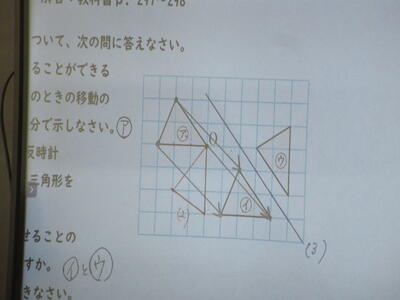 解答：教科書p.297~298
ついて、次の問に答えなさい。
ることができる
のときの移動の
分で示しなさい。ア
反時計
三角形を
せることの
すか。イとウ
きなさい。
ア
O
ウ
イ
(2)
(3)